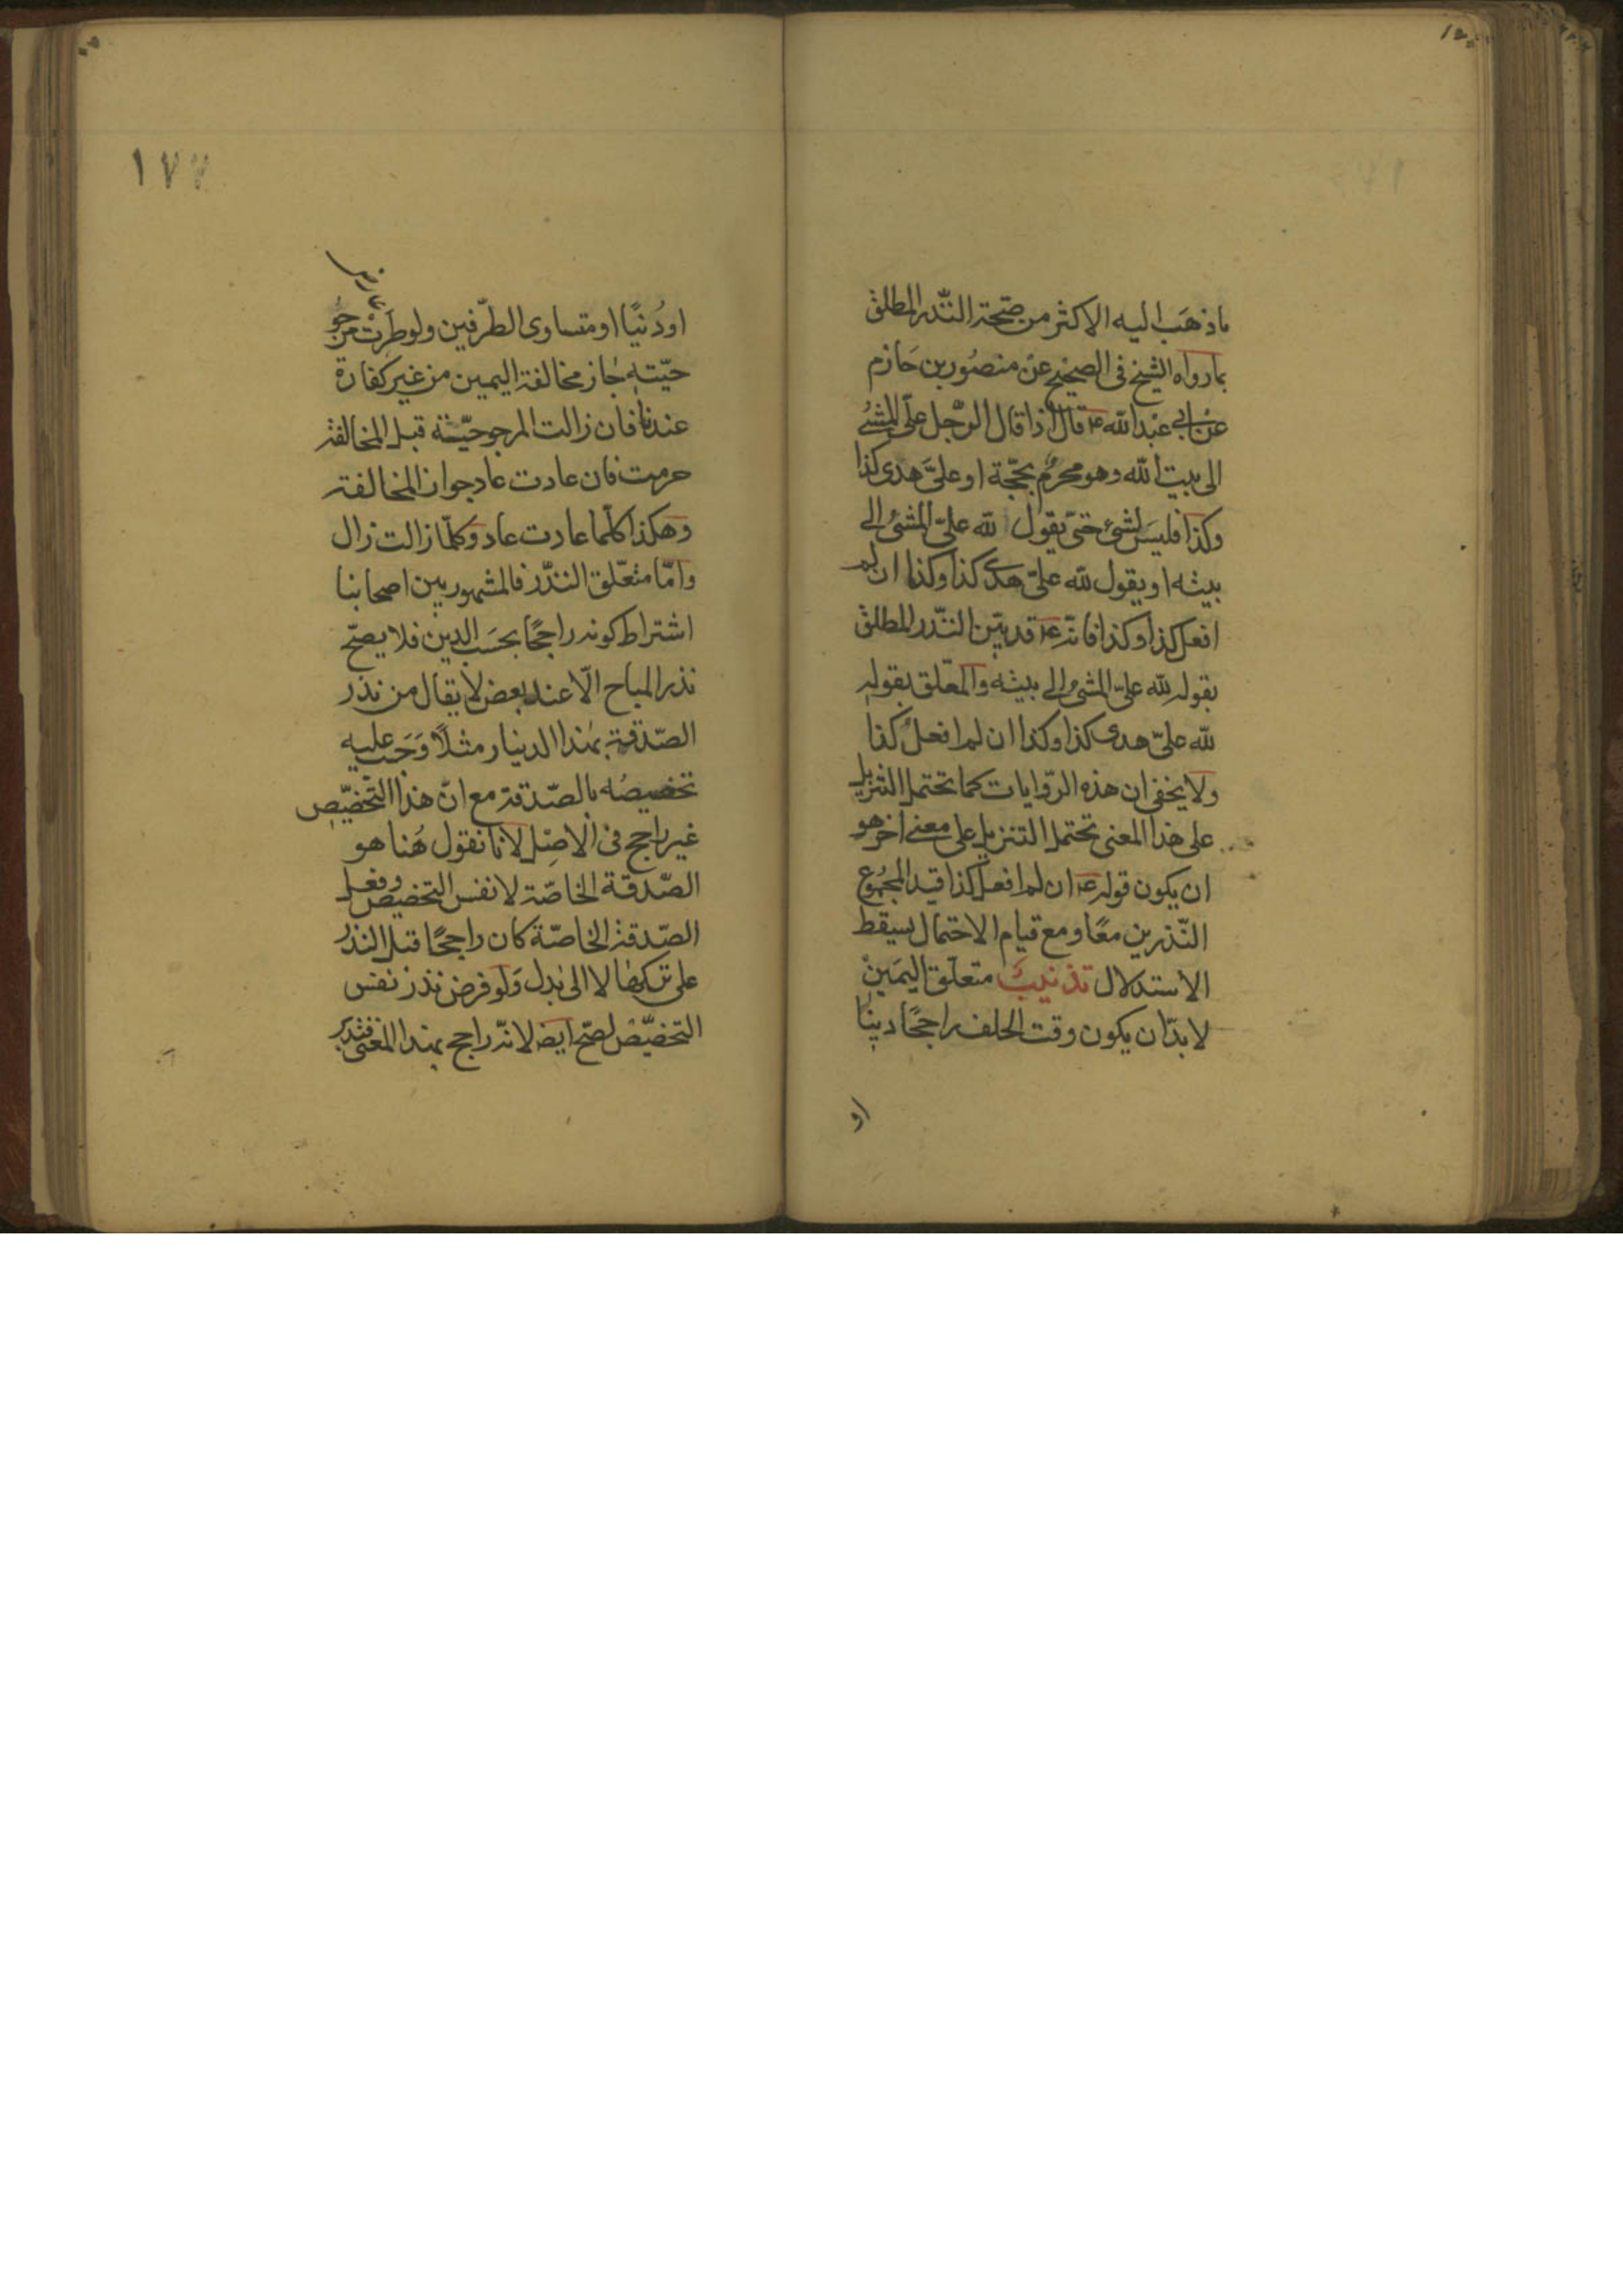 ماذهَب اليه الاكثر من صحّة النّذر المطلق
بما رواه الشيخ فى الصحيح عن منصور بن حَازم
عن ابي عبد الله ع قال اذا قال الرّجل علىّ المشىُ
الى بيت الله وهو محرمٌ بحجّة او علىّ هدى كذا
وكذا فليسَ لشئ حتىّ يقول لله علىّ المشىُ الى
بيته او يقول لله علىّ هدى كذا وكذا ان لم
افعل كذا وكذا فانّه ع قد بيّن النّذر المطلق
بقوله لله علىّ المشىُ الى بيته والمعّلق بقوله
لله علىّ هدى كذا وكذا ان لم افعل كذا
ولا يخفى ان هذه الرّوايات كما تحتمل التنزيل
على هذا المعنى تحتمل التنزيل على معنى اخر هو
ان يكون قوله ع ان لم افعل كذا قيد المجمُوع
النّذرين معًا ومع قيام الاحتمال يسقط
الاستدلال تذنيبٌ متعلّق اليمَين
لا بدّ ان يكون وقت الحلف راجحًا دينًا
او
١٧٧
اودُنيًا او متساوى الطّرفين ولو طرَت مرجو
حيّته جَاز مخالفة اليمين من غير كفارة
عندنا فان زالت المرجوحيّة قبل المخالفة
حرمت فان عادت عاد جواز المخالفة
وهكذا كلّما عادت عاد وكلّما زالت زال
وامّا متعّلق النذّر فالمشهور بين اصحابنا
اشتراط كونه راجحًا بحسَب الدين فلا يصحّ
نذر المباح الّا عند بعض لا يقال من نذر
الصّدقة بهذا الدينار مثلًا وَجَب عليه
تخصيصُه بالصّدقة مع انّ هذا التخصّيص
غير راجح فى الاصل لانا نقول هُنا هو
الصّدقة الخاصّة لا نفس التخصيص وفعل
الصّدقة الخاصّة كان راجحًا قبل النذر
على تركها لا الى بدل وَلو فرض نذر نفس
التخصّيص لصحّ ايضا لانّه راجح بهذا المعنى فتدبر